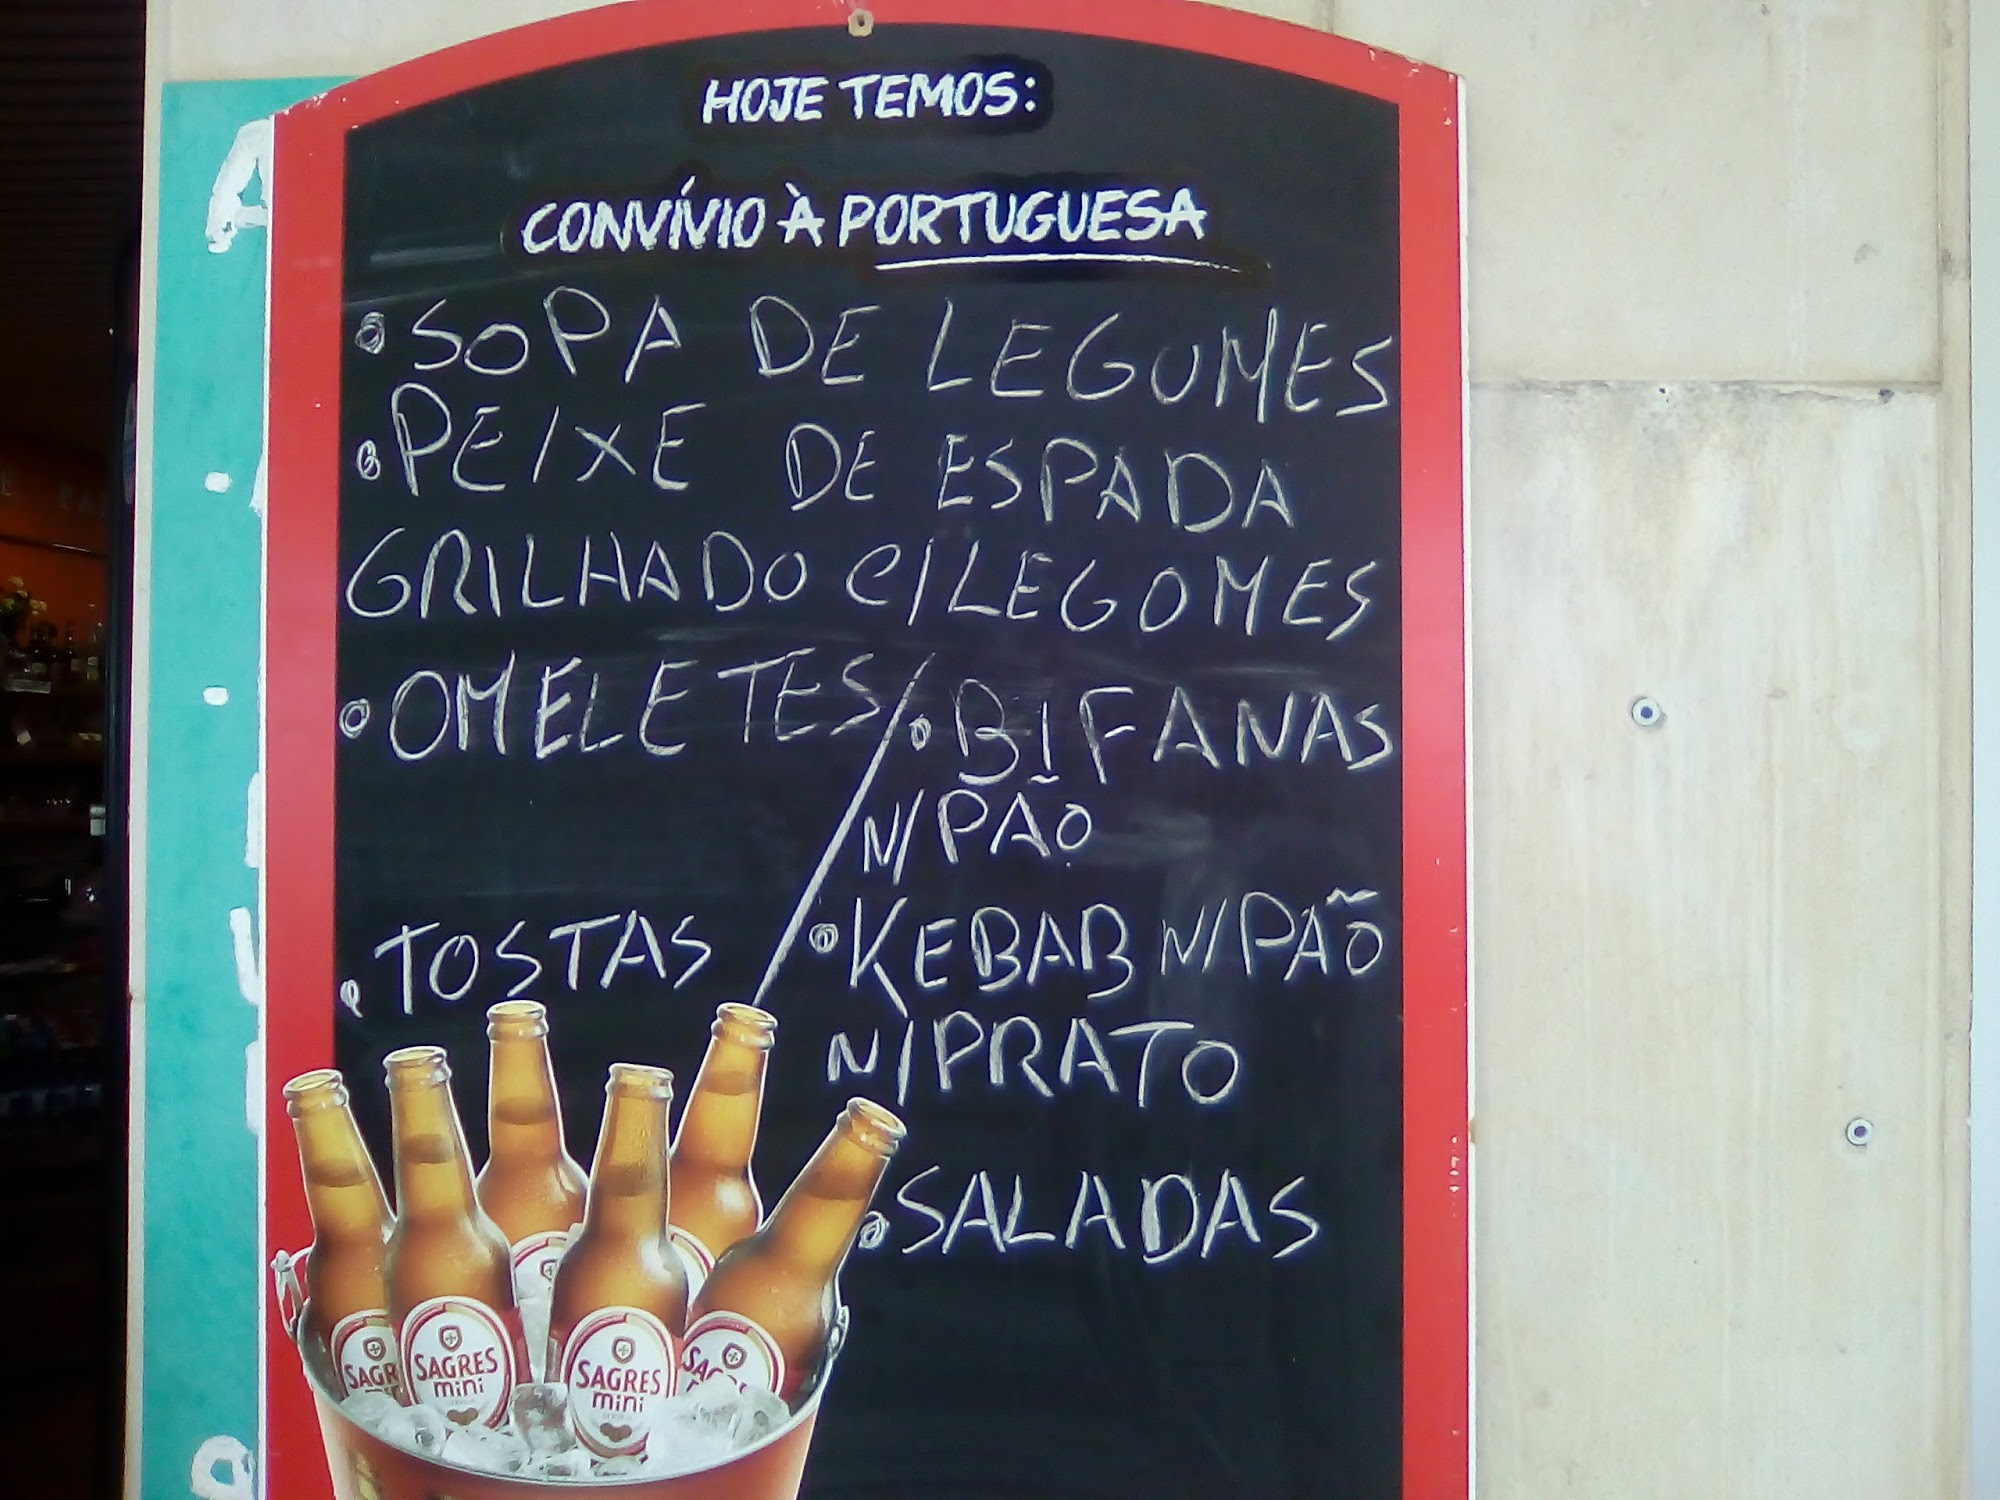 HOJE TEMOS:
CONVÍVIO À PORTUGUESA
• SOPA DE LEGUMES
• PEIXE DE ESPADA
GRILHADO C/LEGOMES
• OMELETES / • BIFANAS
N/PÃO
• TOSTAS
• KEBAB N/PÃO
N/PRATO
• SALADAS
SAGRES
mini
SAGRES
mini